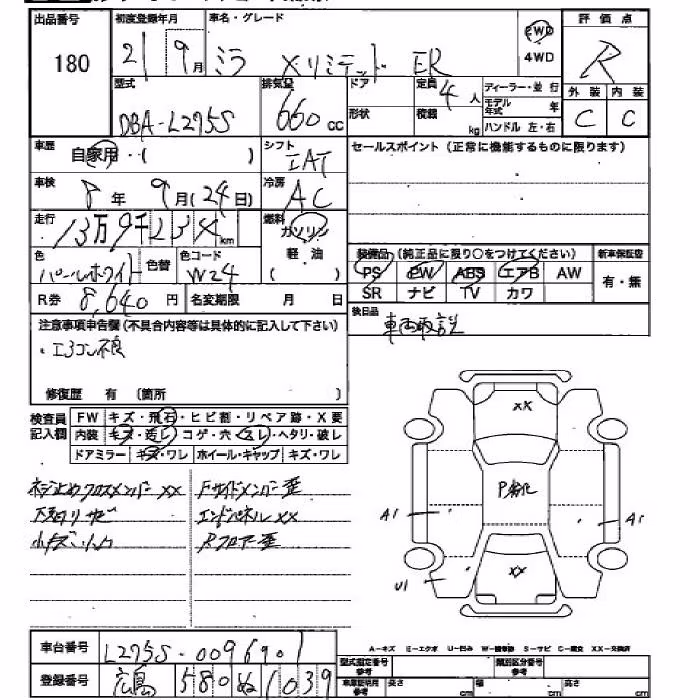 出品番号 初度登録年月 車名・グレード 評価点
180 21 9月 ミラ Xリミテッド ER 2WD 4WD R
型式 排気量 ドア 定員 4人 ディーラー・並行 外装 内装
DBA-L275S 660cc 形状 積載 kg モデル年式 年 C C
ハンドル 左・右
車歴 自家用・( ) シフト IAT セールスポイント(正常に機能するものに限ります)
車検 8年 9月(24日) 冷房 AC
走行 13万9千234km 燃料 ガソリン
軽油
( )
色 パールホワイト 色替 色コード W24
装備品(純正品に限り○をつけてください) 新車保証書
PS PW ABS エアB AW 有・無
SR ナビ TV カワ
R券 8,640円 名変期限 月 日
後日品 車両取説
注意事項申告欄(不具合内容等は具体的に記入して下さい)
・エアコン不良
修復歴 有 〔箇所 〕
検査員記入欄 FW キズ・飛石・ヒビ割・リペア跡・X要
内装 キズ・汚レ・コゲ・穴・スレ・ヘタリ・破レ
ドアミラー キズ・ワレ ホイール・キャップ キズ・ワレ
ネジ止めクロスメンバー XX Fサイドメンバー歪
下廻リサビ エンドパネル XX
小キズ・小凹 Rフロア歪
XX
P劣化
A1 A1
U1 XX
A-キズ E-エクボ U-凹み W-補修跡 S-サビ C-腐食 XX-交換済
車台番号 L275S-0096901
型式指定番号 参考 類別区分番号 参考
登録番号 広島 580 ぬ 1039
車庫証明用 参考 長さ cm 幅 cm 高さ cm